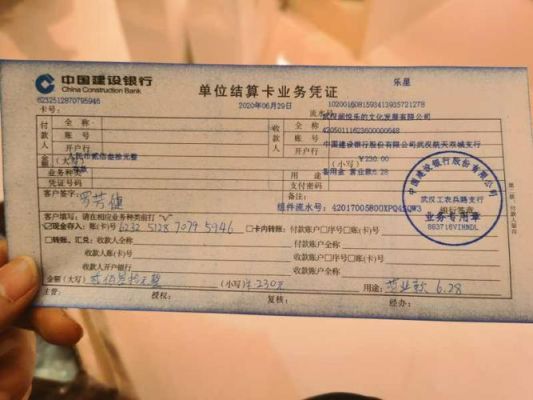 中国建设银行
China Construction Bank
单位结算卡业务凭证
乐星
6232512870795946
2020年06月29日
卡号:
流水号
付款人
全称
账号
开户行
收款人
全称
账号
开户行
42050111623600000648
中国建设银行股份有限公司武汉航天双城支行
金额
(大写)
人民币贰佰叁拾元整
(小写)
¥230.00
业务种类
用途
营业款6.28
凭证号码
支付密码
客户签字
备注:
组件流水号:
中国建设银行股份有限公司
武汉工农兵路支行
银行签章
业务专用章
客户填写:请在相应业务种类前打“√”
现金存入:账(卡)号
6232 5128 7079 5946
卡内转账:
付款账户□序号□账(卡)号
□转账、汇兑:收款人全称
付款账户全称
收款人账(卡)号
收款账户□序号□账(卡)号
收款人开户银行
收款账户全称
金额(大写)
贰佰叁拾元整
(小写)
230元
用途:
营业款 6.28
主管:
授权:
复核:
经办: